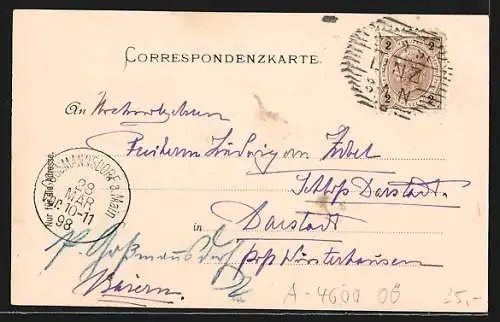 CORRESPONDENZKARTE.
2 2
LINZ
2 2
An Hochwohlgeboren
Freiherrn Ludwig von Zobel
Schloss Darstadt.
Nur für die Adresse.
GOSSMANNSDORF a. Main
28
MAR
10-11
98
in Darstadt
p. Goßmannsdorf
Post Winterhausen
Baiern.
A-4600 OÖ 15,-